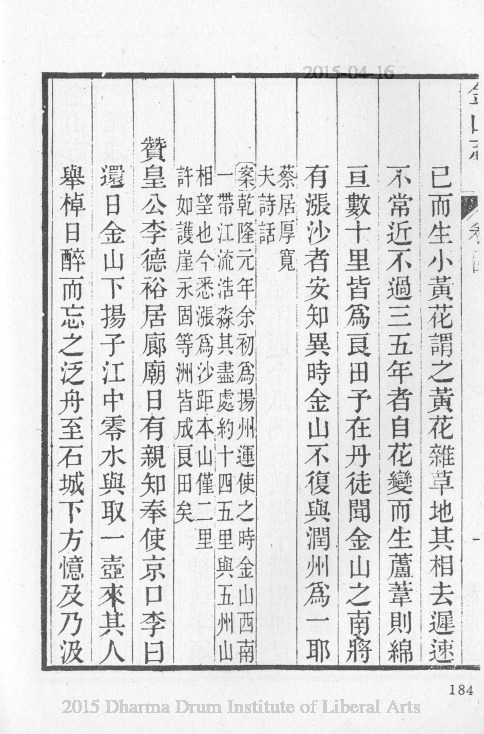 2015-04-16
已而生小黃花謂之黃花雜草地其相去遲速
不常近不過三五年者自花變而生蘆葦則綿
亘數十里皆爲良田予在丹徒聞金山之南將
有漲沙者安知異時金山不復與潤州爲一耶
蔡居厚寬
夫詩話
案乾隆元年余初爲揚州運使之時金山西南
一帶江流浩淼其盡處約十四五里與五州山
相望也今悉漲爲沙距本山僅二里
許如護崖永固等洲皆成良田矣
贊皇公李德裕居廊廟日有親知奉使京口李曰
還日金山下揚子江中零水與取一壺來其人
舉棹日醉而忘之泛舟至石城下方憶及乃汲
184
2015 Dharma Drum Institute of Liberal Arts